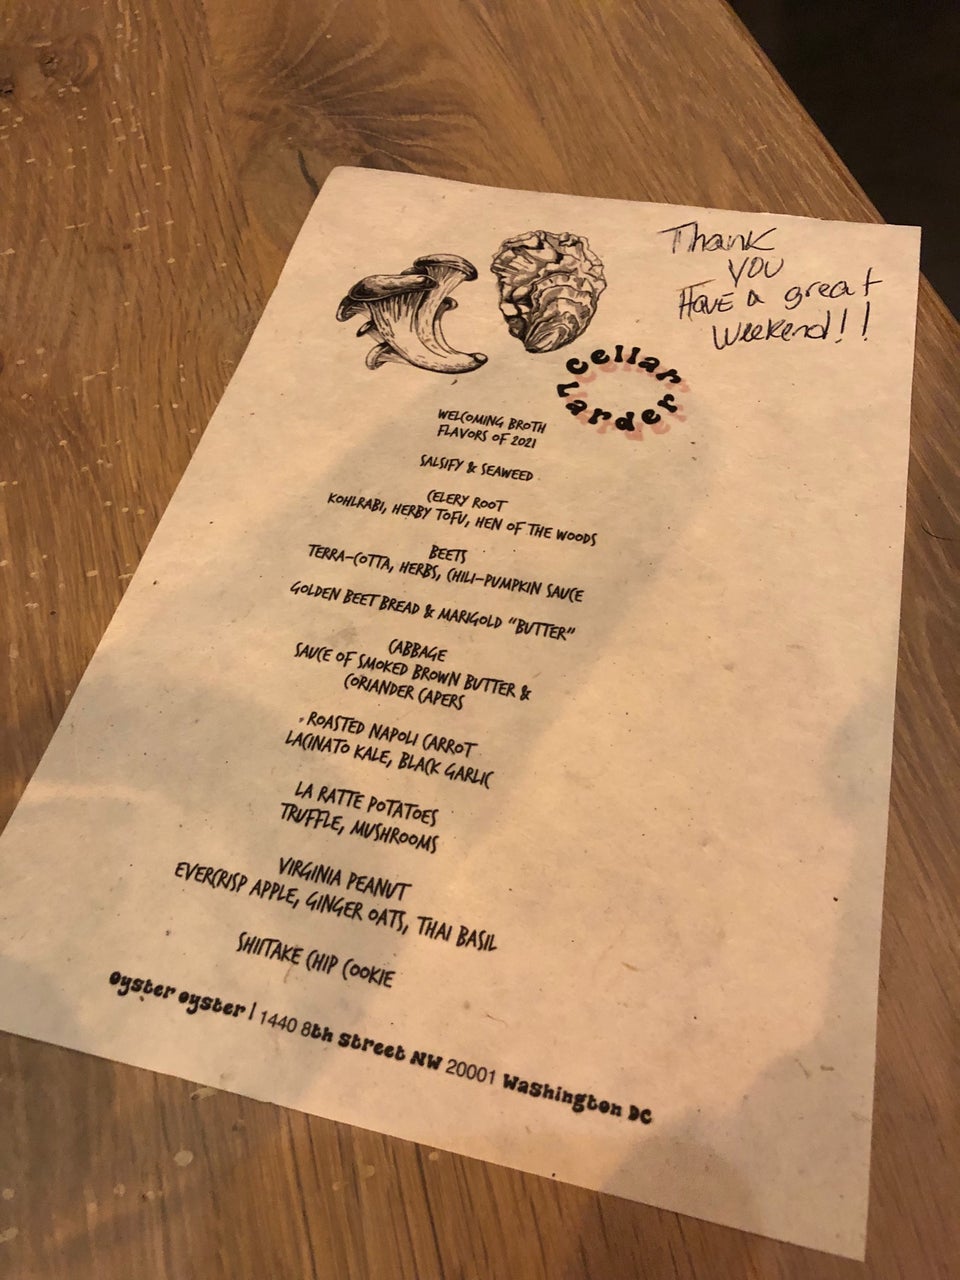 Thank
you
Have a great
weekend!!
Cellar
Larder
WELCOMING BROTH
FLAVORS OF 2021
SALSIFY & SEAWEED
CELERY ROOT
KOHLRABI, HERBY TOFU, HEN OF THE WOODS
BEETS
TERRA-COTTA, HERBS, CHILI-PUMPKIN SAUCE
GOLDEN BEET BREAD & MARIGOLD "BUTTER"
CABBAGE
SAUCE OF SMOKED BROWN BUTTER &
CORIANDER CAPERS
ROASTED NAPOLI CARROT
LACINATO KALE, BLACK GARLIC
LA RATTE POTATOES
TRUFFLE, MUSHROOMS
VIRGINIA PEANUT
EVERCRISP APPLE, GINGER OATS, THAI BASIL
SHIITAKE CHIP COOKIE
Oyster Oyster | 1440 8th Street NW 20001 Washington DC